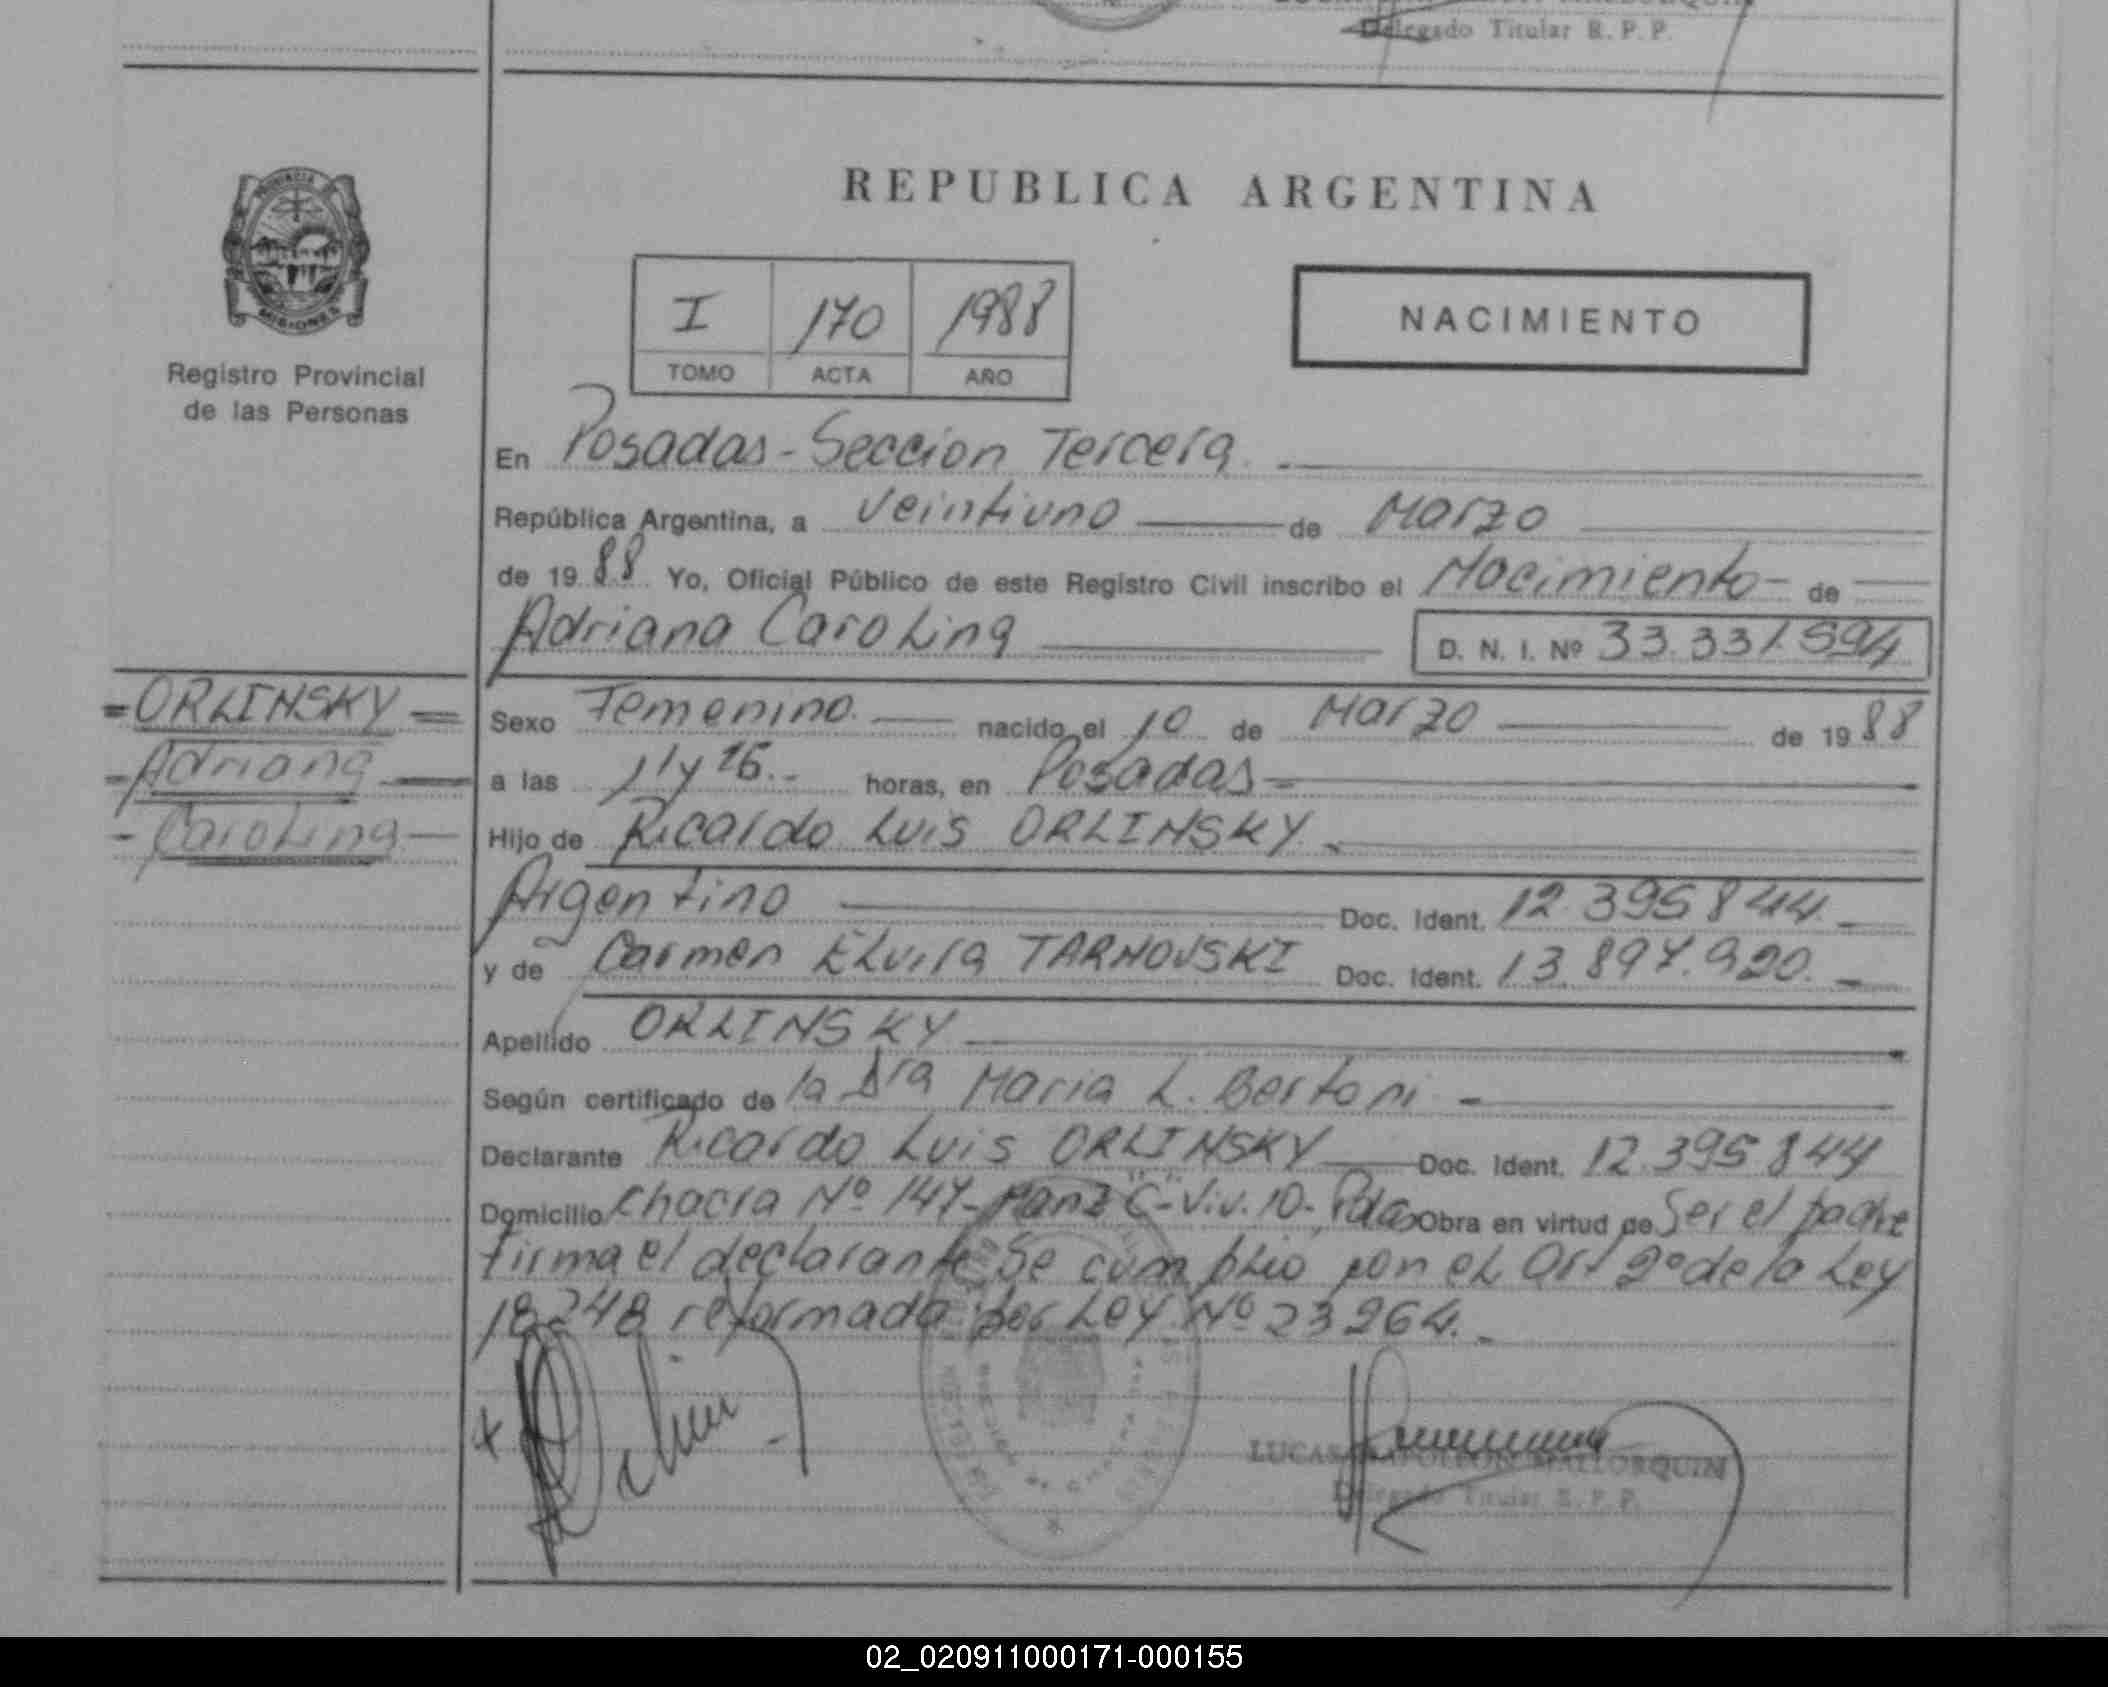 Delegado Titular R. P. P.
PROVINCIA DE
MISIONES
Registro Provincial
de las Personas
REPUBLICA ARGENTINA
I 170 1988
TOMO ACTA AÑO
NACIMIENTO
En Posadas - Seccion Tercera
República Argentina, a veintiuno de Marzo
de 1988 Yo, Oficial Público de este Registro Civil inscribo el Nacimiento de
Adriana Carolina D. N. I. Nº 33.331.594
= ORLINSKY =
- Adriana -
- Carolina -
Sexo Femenino. nacido el 10 de Marzo de 1988
a las 11 y 15.- horas, en Posadas
Hijo de Ricardo Luis ORLINSKY.
Argentino Doc. Ident. 12.395 844.
y de Carmen Elvira TARNOVSKI Doc. Ident. 13.897.920.
Apellido ORLINSKY
Según certificado de la Dra Maria L. Bertoni
Declarante Ricardo Luis ORLINSKY Doc. Ident. 12.395 844
Domicilio Chacra Nº 147- Manz "C"- Viv. 10- Pdas Obra en virtud de Ser el padre
firma el declarante Se cumplio con el Art 2º de la Ley
18.248 reformada por Ley Nº 23 264.
LUCAS NAPOLEON MALLORQUIN
Delegado Titular R. P. P.
02_020911000171-000155